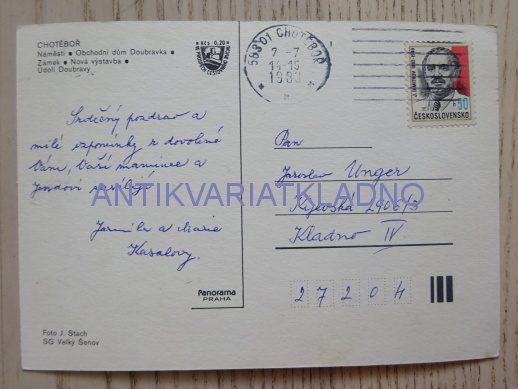 CHOTĚBOŘ
Náměstí • Obchodní dům Doubravka •
Zámek • Nová výstavba •
Údolí Doubravy
Kčs 0,20
583 01 CHOTĚBOŘ
7.-7.
14-15
1989
50
ČESKOSLOVENSKO
Srdečný pozdrav a
milé vzpomínky z dovolené
Vám, Vaší mamince a
Jendovi
Jarmila a Marie
Kasalovy.
Pan
Jaroslav Unger
Kyjevská 2906/3
Kladno IV
27204
ANTIKVARIATKLADNO
Panorama
PRAHA
Foto J. Stach
SG Velký Šenov